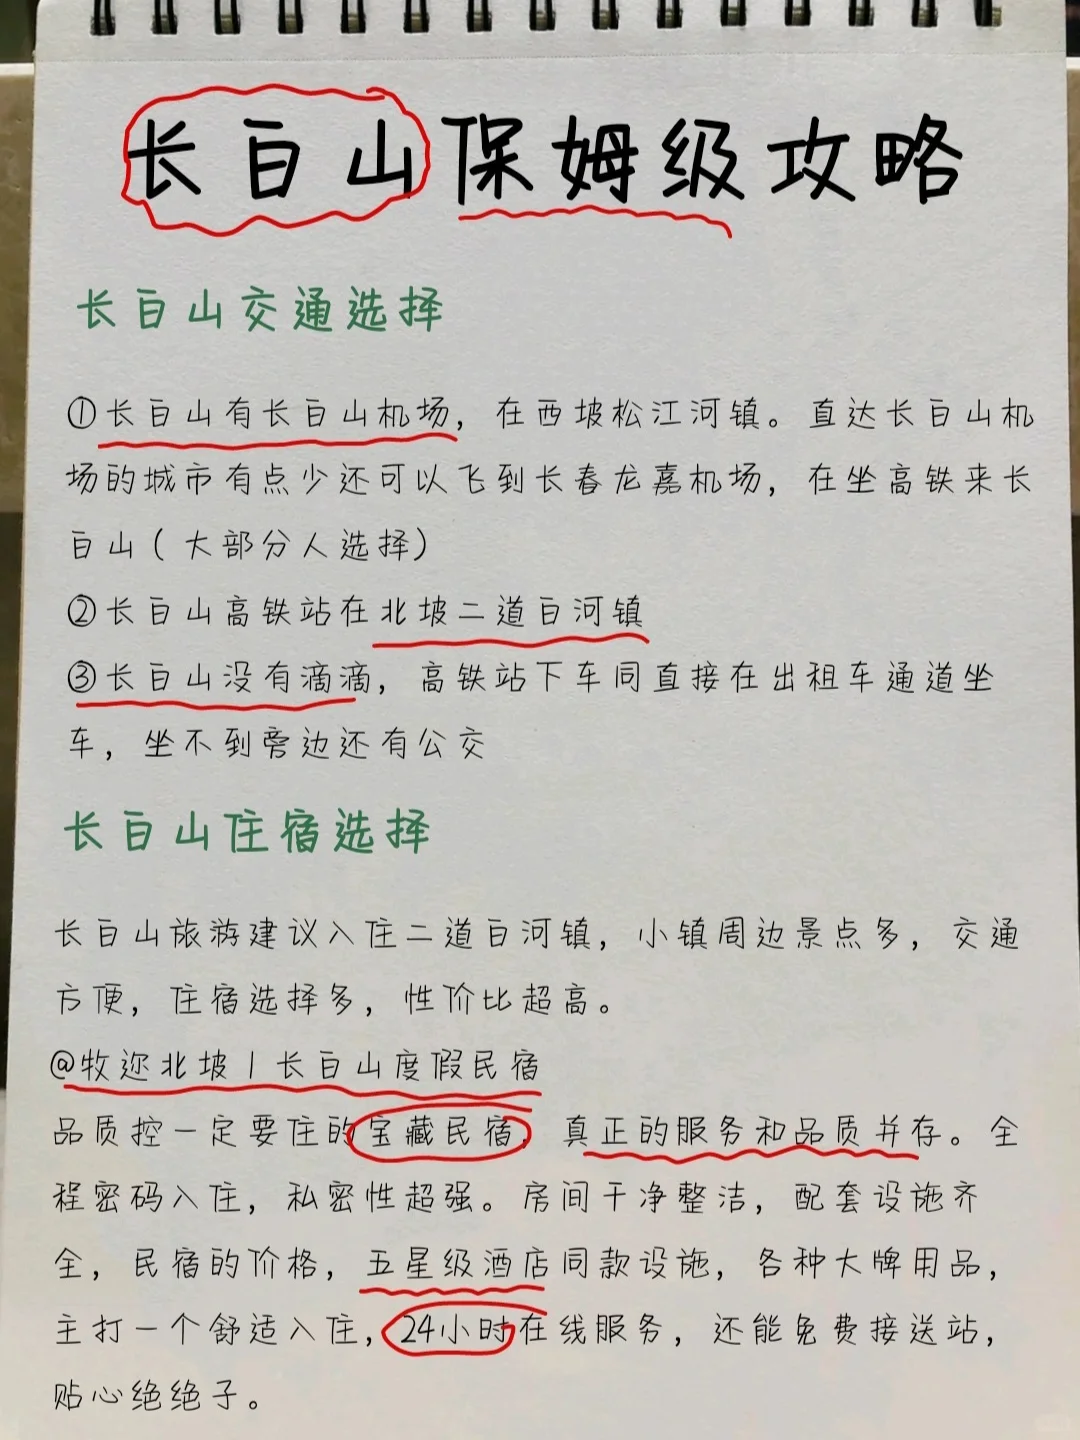 长白山保姆级攻略
长白山交通选择
①长白山有长白山机场，在西坡松江河镇。直达长白山机
场的城市有点少还可以飞到长春龙嘉机场，在坐高铁来长
白山（大部分人选择）
②长白山高铁站在北坡二道白河镇
③长白山没有滴滴，高铁站下车同直接在出租车通道坐
车，坐不到旁边还有公交
长白山住宿选择
长白山旅游建议入住二道白河镇，小镇周边景点多，交通
方便，住宿选择多，性价比超高。
@牧迩北坡丨长白山度假民宿
品质控一定要住的宝藏民宿，真正的服务和品质并存。全
程密码入住，私密性超强。房间干净整洁，配套设施齐
全，民宿的价格，五星级酒店同款设施，各种大牌用品，
主打一个舒适入住，24小时在线服务，还能免费接送站，
贴心绝绝子。